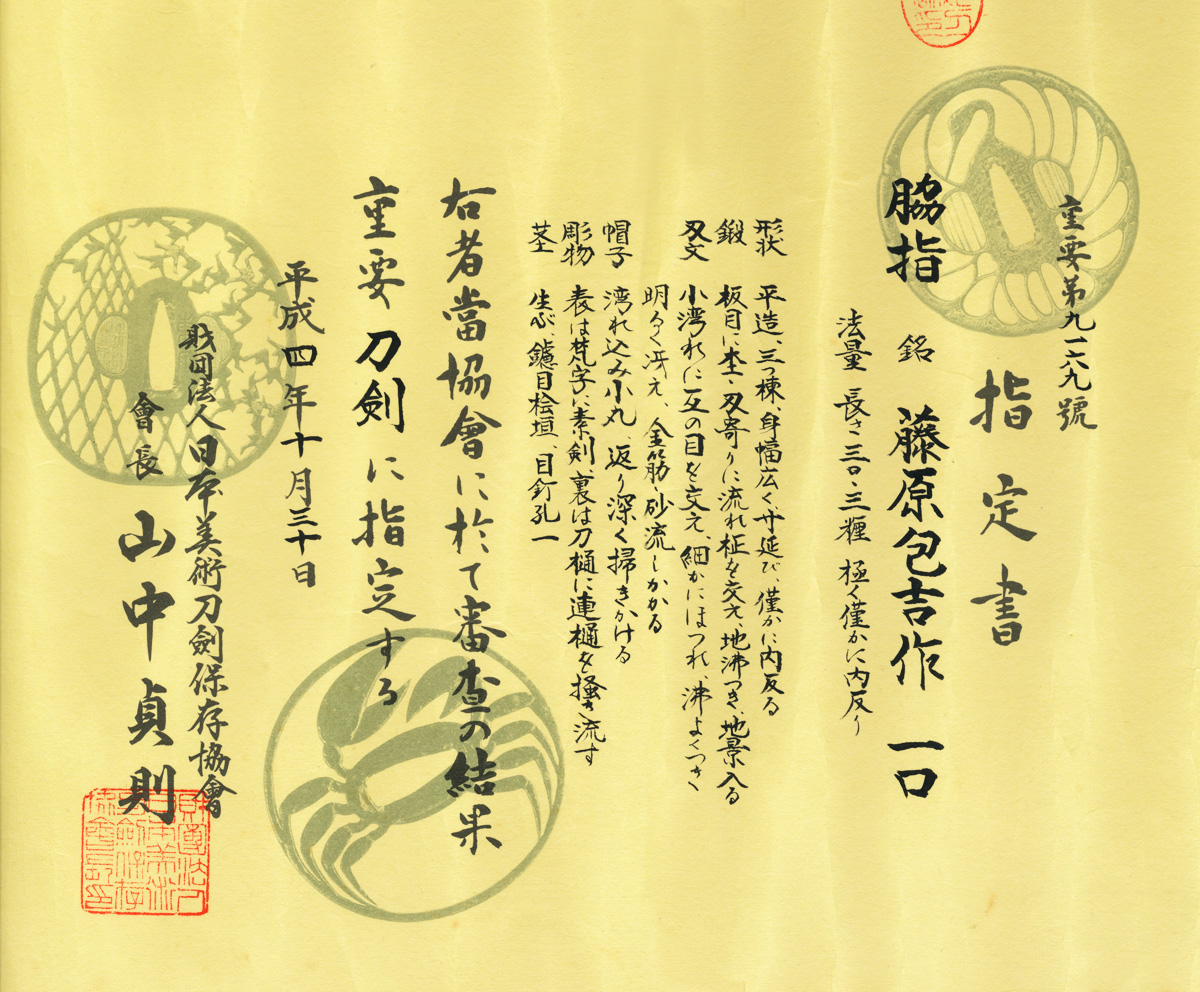 重要第九一六九號
指定書
脇指 銘 藤原包吉作 一口
法量 長さ三〇・三糎 極く僅かに内反り
形状 平造、三つ棟、身幅広く寸延び、僅かに内反る
鍛 板目に杢・刃寄りに流れ柾を交え、地沸つき、地景入る
刃文 小湾れに互の目を交え、細かにほつれ、沸よくつき
明るく冴え、金筋・砂流しかかる
帽子 湾れ込み小丸、返り深く掃きかける
彫物 表は梵字に素剣、裏は刀樋に連樋を掻き流す
茎 生ぶ、鑢目桧垣、目釘孔一
右者當協會に於て審査の結果
重要刀剣に指定する
平成四年十月三十日
財団法人日本美術刀劍保存協會
會長 山中貞則
財團法人
日本美術
刀劍保存
協會長印